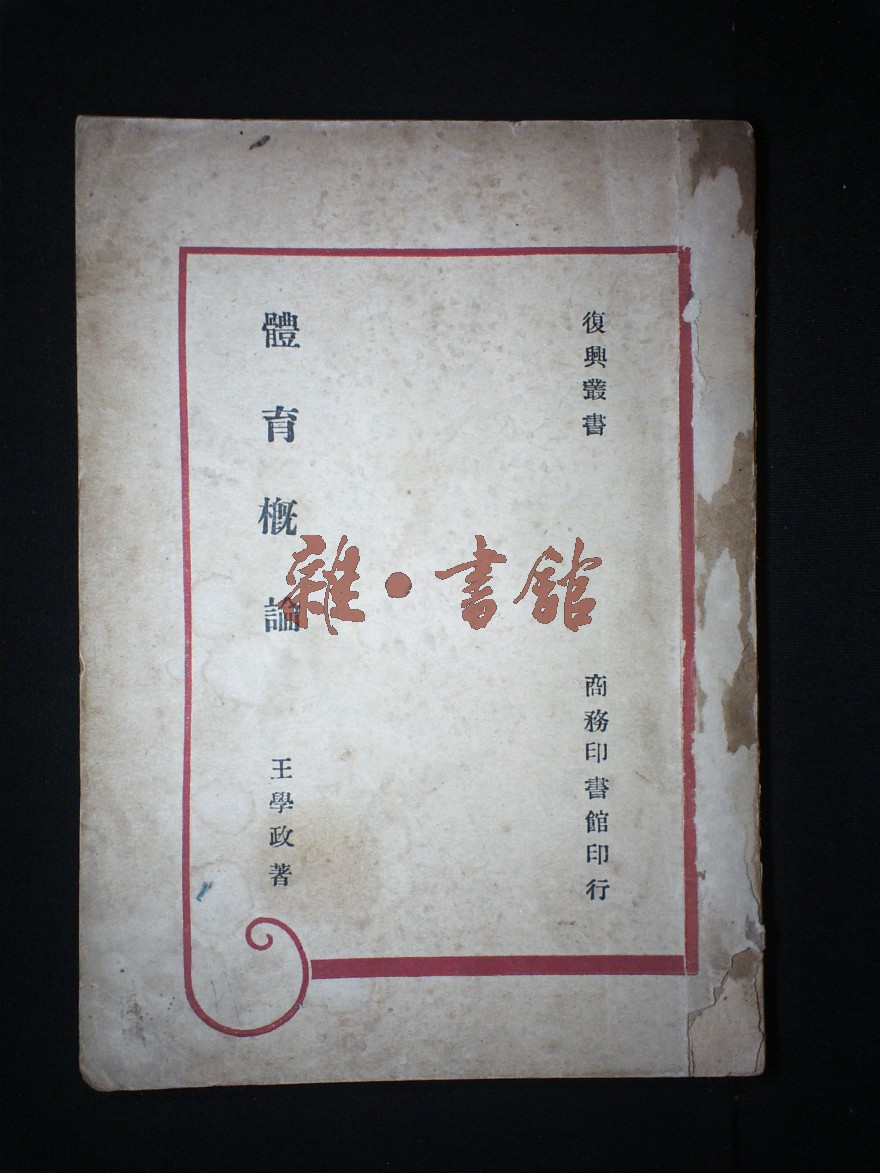 復興叢書
商務印書館印行
體育概論
王學政著
雜·書館